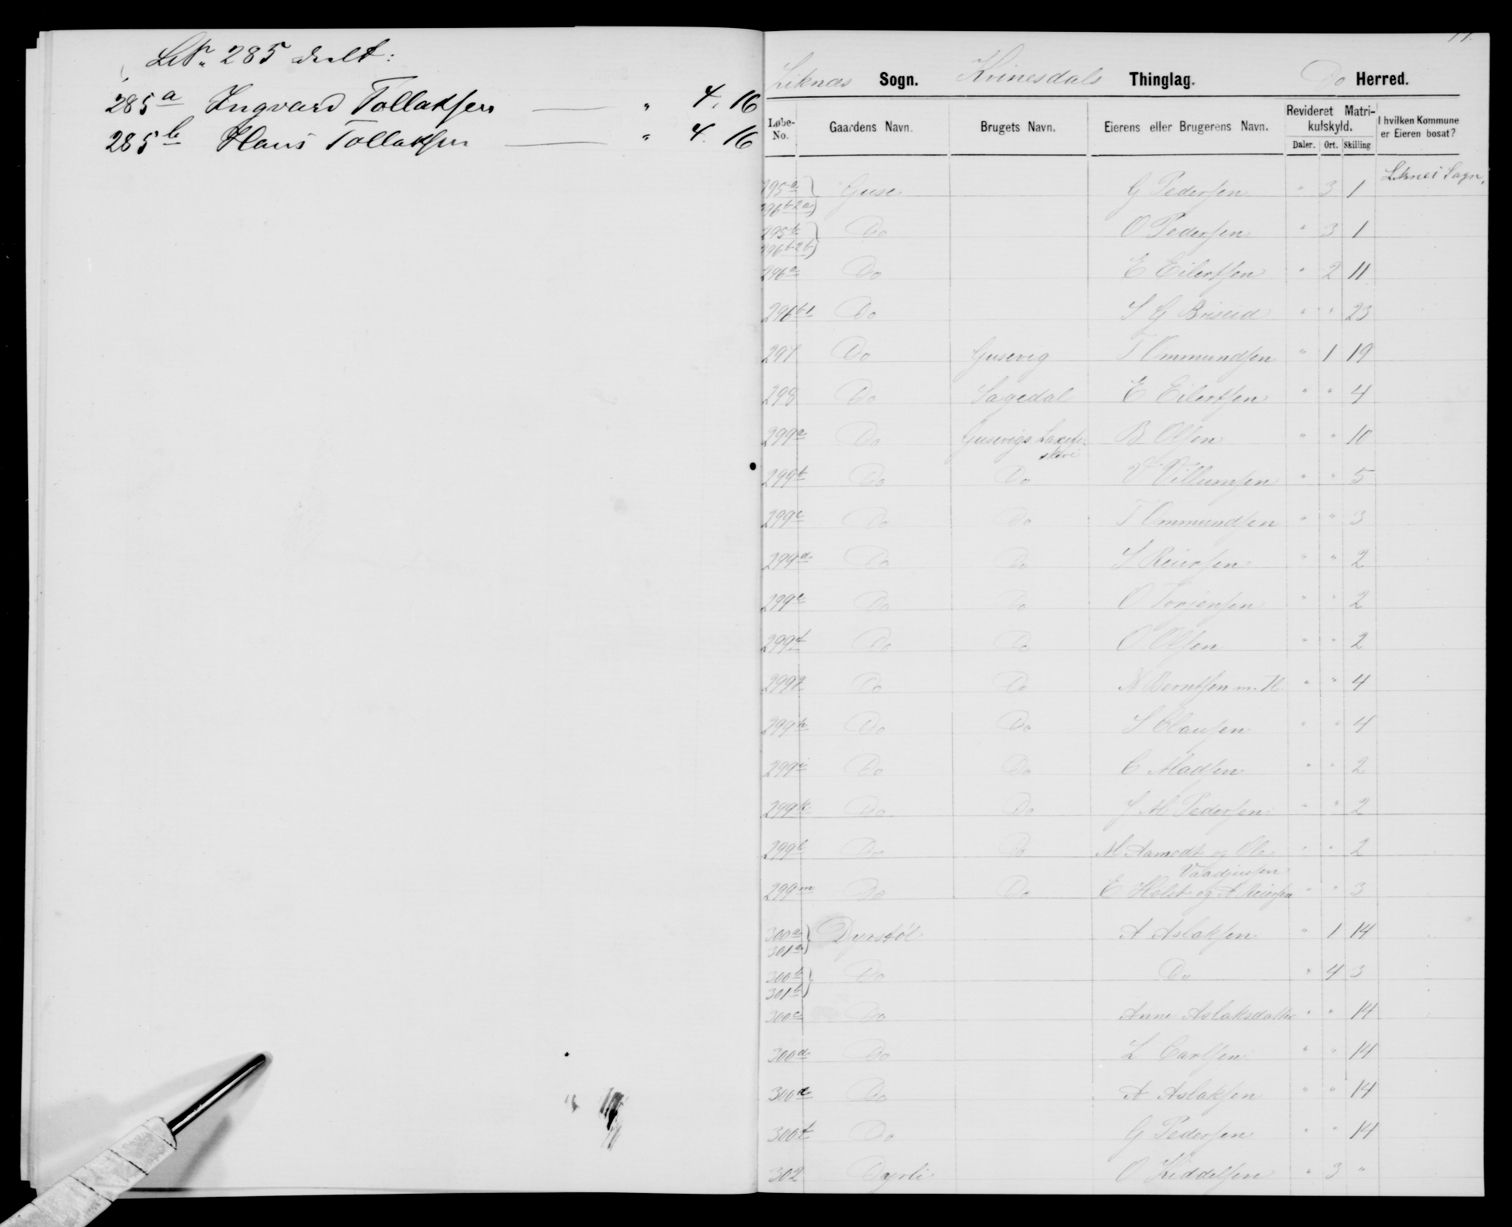 LNº 285 deelt:
285a Ingvard Tollaksen — " 4. 16
285b Hans Tollaksen — " 4. 16
Liknæs Sogn. Kvinesdals Thinglag. Do Herred.
Løbe-No. Gaardens Navn. Brugets Navn. Eierens eller Brugerens Navn. Revideret Matrikulskyld. Daler. Ort. Skilling I hvilken Kommune er Eieren bosat?
295a 296b2a Guse G Pedersen " 3 1 Liknes Sogn,
295b 296b2b Do O Pedersen " 3 1
296a Do E Eilertsen " 2 11
296b1 Do S G Briseid " " 23
297 Do Gusevig T Ommundsen " 1 19
298 Do Sagedal E Eilertsen " " 4
299a Do Gusevigs B Olsen " " 10
299b Do Do V Villumsen " " 5
299c Do Do T Ommundsen " " 3
299d Do Do S Reiersen " " 2
299e Do Do O Torjersen " " 2
299f Do Do O Olsen " " 2
299g Do Do N Berntsen m. fl " " 4
299h Do Do S Clausen " " 4
299i Do Do C Madsen " " 2
299k Do Do J M Pedersen " " 2
299l Do Do M Aamodt og Ole " " 2
299m Do Do E Holst og A Reiersen " " 3
300a 301a Dyrstøl A Aslaksen " 1 14
300b 301b Do Do " 4 3
300c Do Anne Aslaksdatter " " 14
300d Do L Carlsen " " 14
300e Do A Aslaksen " " 14
300f Do G Pedersen " " 14
302 Dyrli O Kiddelsen " 3 "